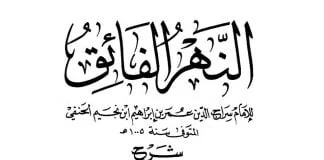 النَّهرُ الفَائِق
للإمَام سِرَاج الدِّين عُمَر بن إبرَاهِيم ابن نجَيم الحنَفي
المتوفى سَنة ١٠٠٥ هـ
شَرح